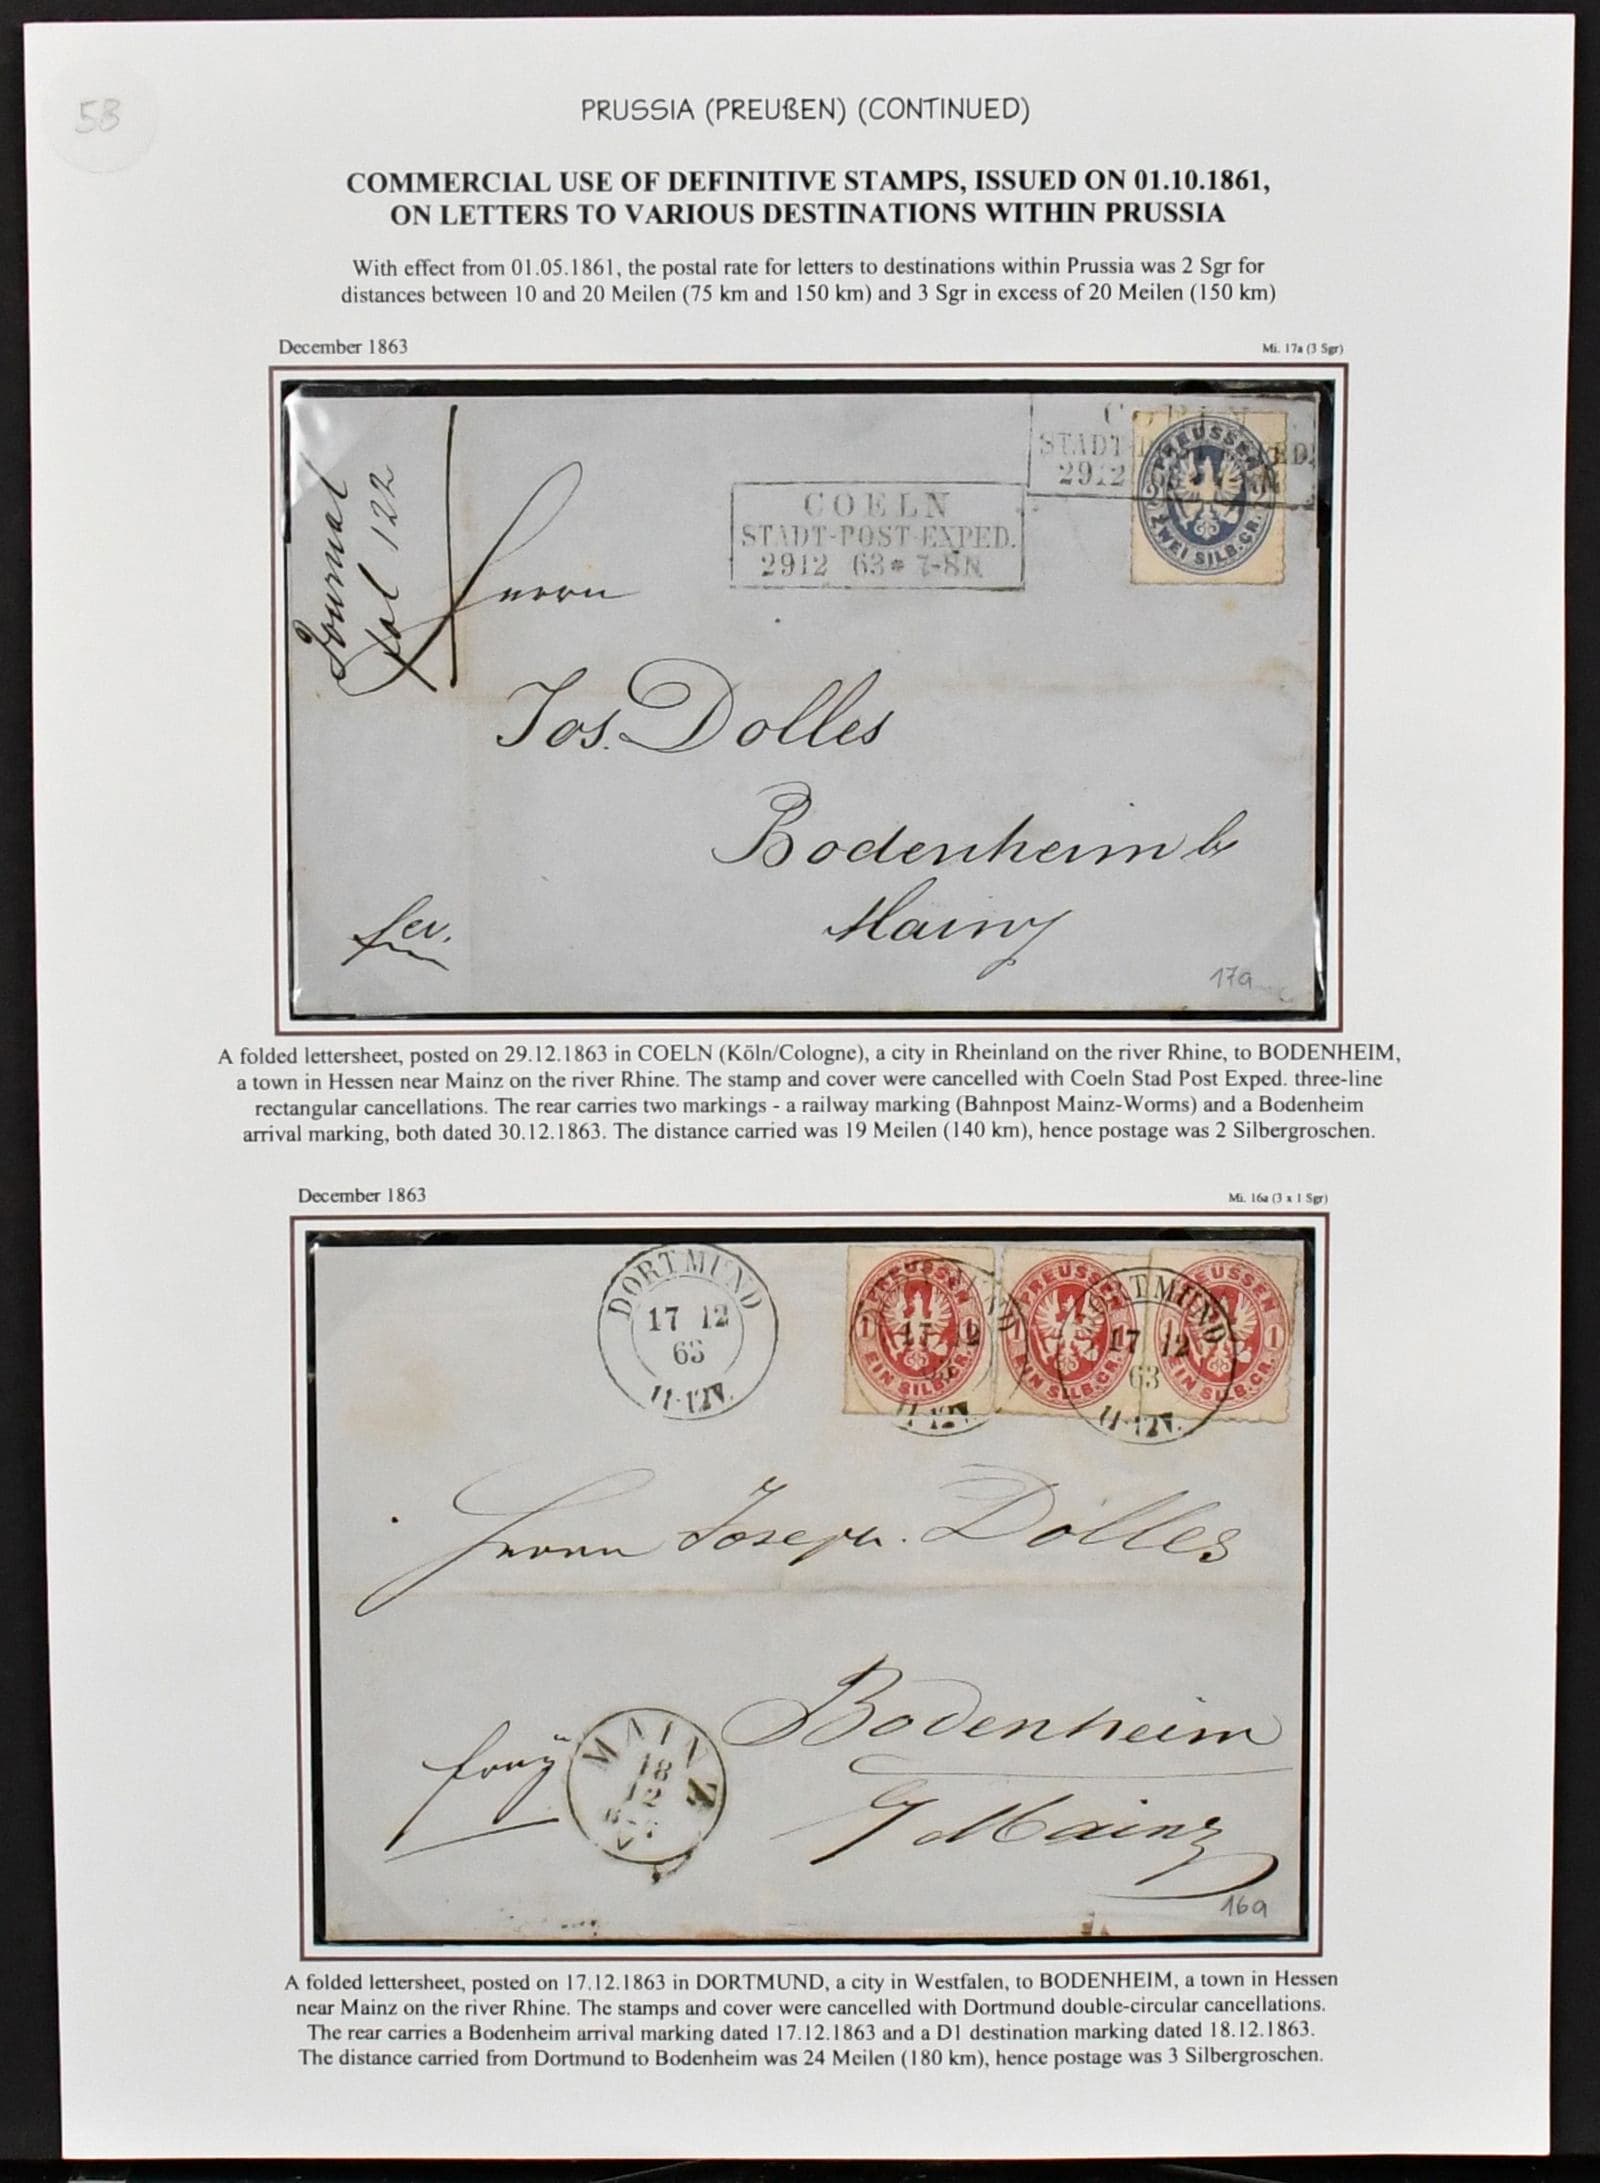 58
PRUSSIA (PREUßEN) (CONTINUED)
COMMERCIAL USE OF DEFINITIVE STAMPS, ISSUED ON 01.10.1861,
ON LETTERS TO VARIOUS DESTINATIONS WITHIN PRUSSIA
With effect from 01.05.1861, the postal rate for letters to destinations within Prussia was 2 Sgr for
distances between 10 and 20 Meilen (75 km and 150 km) and 3 Sgr in excess of 20 Meilen (150 km)
December 1863
Mi. 17a (3 Sgr)
Journal
fol 122
COELN
STADT-
2912
PREUSSEN
ZWEI SILB.GR.
COELN
STADT-POST-EXPED.
2912 63 * 7-8N
Herrn
Jos. Dolles
Bodenheim b/
Mainz
17a
A folded lettersheet, posted on 29.12.1863 in COELN (Köln/Cologne), a city in Rheinland on the river Rhine, to BODENHEIM,
a town in Hessen near Mainz on the river Rhine. The stamp and cover were cancelled with Coeln Stad Post Exped. three-line
rectangular cancellations. The rear carries two markings - a railway marking (Bahnpost Mainz-Worms) and a Bodenheim
arrival marking, both dated 30.12.1863. The distance carried was 19 Meilen (140 km), hence postage was 2 Silbergroschen.
December 1863
Mi. 16a (3 x 1 Sgr)
DORTMUND
17 12
63
11-12V.
PREUSSEN
1 1
EIN SILB.GR.
17 12
PREUSSEN
1
EIN SILB.GR.
DORTMUND
17 12
63
11-12V.
PREUSSEN
1
EIN SILB.GR.
Herrn Joseph. Dolles
Bodenheim
b/ Mainz
MAINZ
18
12
16a
A folded lettersheet, posted on 17.12.1863 in DORTMUND, a city in Westfalen, to BODENHEIM, a town in Hessen
near Mainz on the river Rhine. The stamps and cover were cancelled with Dortmund double-circular cancellations.
The rear carries a Bodenheim arrival marking dated 17.12.1863 and a D1 destination marking dated 18.12.1863.
The distance carried from Dortmund to Bodenheim was 24 Meilen (180 km), hence postage was 3 Silbergroschen.